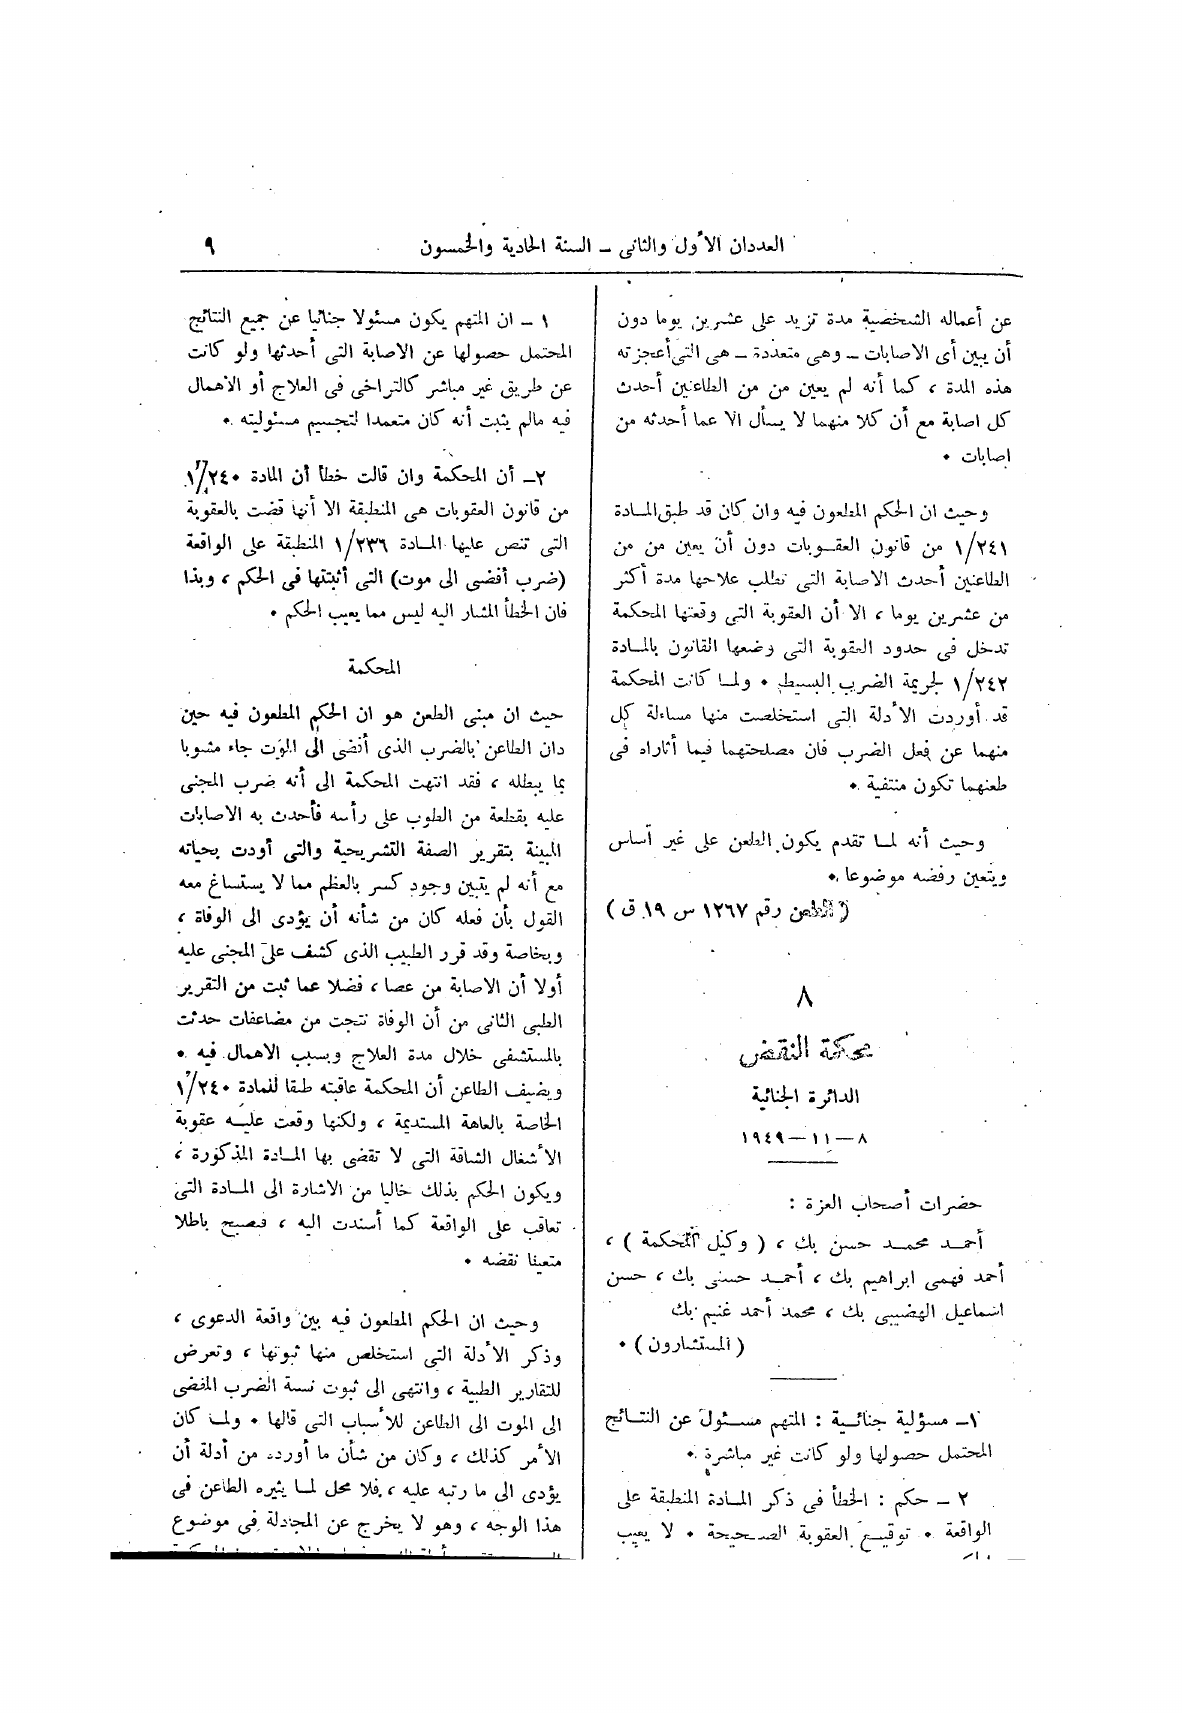 العددان الأول والثانى – السنة الحادية والخمسون
٩
عن أعماله الشخصية مدة تزيد على عشرين يوما دون
أن يبين أى الاصابات – وهى متعددة – هى التى أعجزته
هذه المدة ، كما أنه لم يعين من من الطاعنين أحدث
كل اصابة مع أن كلا منهما لا يسأل الا عما أحدثه من
اصابات .
وحيث ان الحكم المطعون فيه وان كان قد طبق المادة
١/٢٤١ من قانون العقوبات دون أن يعين من من
الطاعنين أحدث الاصابة التى تطلب علاجها مدة أكثر
من عشرين يوما ، الا أن العقوبة التى وقعتها المحكمة
تدخل فى حدود العقوبة التى وضعها القانون بالمادة
١/٢٤٢ لجريمة الضرب البسيط . ولما كانت المحكمة
قد أوردت الأدلة التى استخلصت منها مساءلة كل
منهما عن فعل الضرب فان مصلحتهما فيما أثاراه فى
طعنهما تكون منتفية .
وحيث أنه لما تقدم يكون الطعن على غير أساس
ويتعين رفضه موضوعا .
( الطعن رقم ١٢٦٧ س ١٩ ق )
٨
محكمة النقض
الدائرة الجنائية
٨ – ١١ – ١٩٤٩
حضرات أصحاب العزة :
أحمد محمد حسن بك ، ( وكيل المحكمة ) ،
أحمد فهمى ابراهيم بك ، أحمد حسنى بك ، حسن
اسماعيل الهضيبى بك ، محمد أحمد غنيم بك
( المستشارون ) .
١– مسؤلية جنائية : المتهم مسئول عن النتائج
المحتمل حصولها ولو كانت غير مباشرة .
٢ – حكم : الخطأ فى ذكر المادة المنطبقة على
الواقعة . توقيع العقوبة الصحيحة . لا يعيب
١ – ان المتهم يكون مسئولا جنائيا عن جميع النتائج
المحتمل حصولها عن الاصابة التى أحدثها ولو كانت
عن طريق غير مباشر كالتراخى فى العلاج أو الأهمال
فيه مالم يثبت أنه كان متعمدا لتجسيم مسئوليته .
٢– أن المحكمة وان قالت خطأ أن المادة ١/٢٤٠
من قانون العقوبات هى المنطبقة الا أنها قضت بالعقوبة
التى تنص عليها المادة ١/٢٣٦ المنطبقة على الواقعة
(ضرب أفضى الى موت) التى أثبتتها فى الحكم ، وبذا
فان الخطأ المشار اليه ليس مما يعيب الحكم .
المحكمة
حيث ان مبنى الطعن هو ان الحكم المطعون فيه حين
دان الطاعن بالضرب الذى أفضى الى الموت جاء مشوبا
بما يبطله ، فقد انتهت المحكمة الى أنه ضرب المجنى
عليه بقطعة من الطوب على رأسه فأحدث به الاصابات
المبينة بتقرير الصفة التشريحية والتى أودت بحياته
مع أنه لم يتبين وجود كسر بالعظم مما لا يستساغ معه
القول بأن فعله كان من شأنه أن يؤدى الى الوفاة ،
وبخاصة وقد قرر الطبيب الذى كشف على المجنى عليه
أولا أن الاصابة من عصا ، فضلا عما ثبت من التقرير
الطبى الثانى من أن الوفاة نتجت من مضاعفات حدثت
بالمستشفى خلال مدة العلاج وبسبب الاهمال فيه .
ويضيف الطاعن أن المحكمة عاقبته طبقا للمادة ١/٢٤٠
الخاصة بالعاهة المستديمة ، ولكنها وقعت عليه عقوبة
الأشغال الشاقة التى لا تقضى بها المادة المذكورة ،
ويكون الحكم بذلك خاليا من الاشارة الى المادة التى
تعاقب على الواقعة كما أسندت اليه ، فيصبح باطلا
متعينا نقضه .
وحيث ان الحكم المطعون فيه بين واقعة الدعوى ،
وذكر الأدلة التى استخلص منها ثبوتها ، وتعرض
للتقارير الطبية ، وانتهى الى ثبوت نسبة الضرب المفضى
الى الموت الى الطاعن للأسباب التى قالها . ولما كان
الأمر كذلك ، وكان من شأن ما أورده من أدلة أن
يؤدى الى ما رتبه عليه ، فلا محل لما يثيره الطاعن فى
هذا الوجه ، وهو لا يخرج عن المجادلة فى موضوع